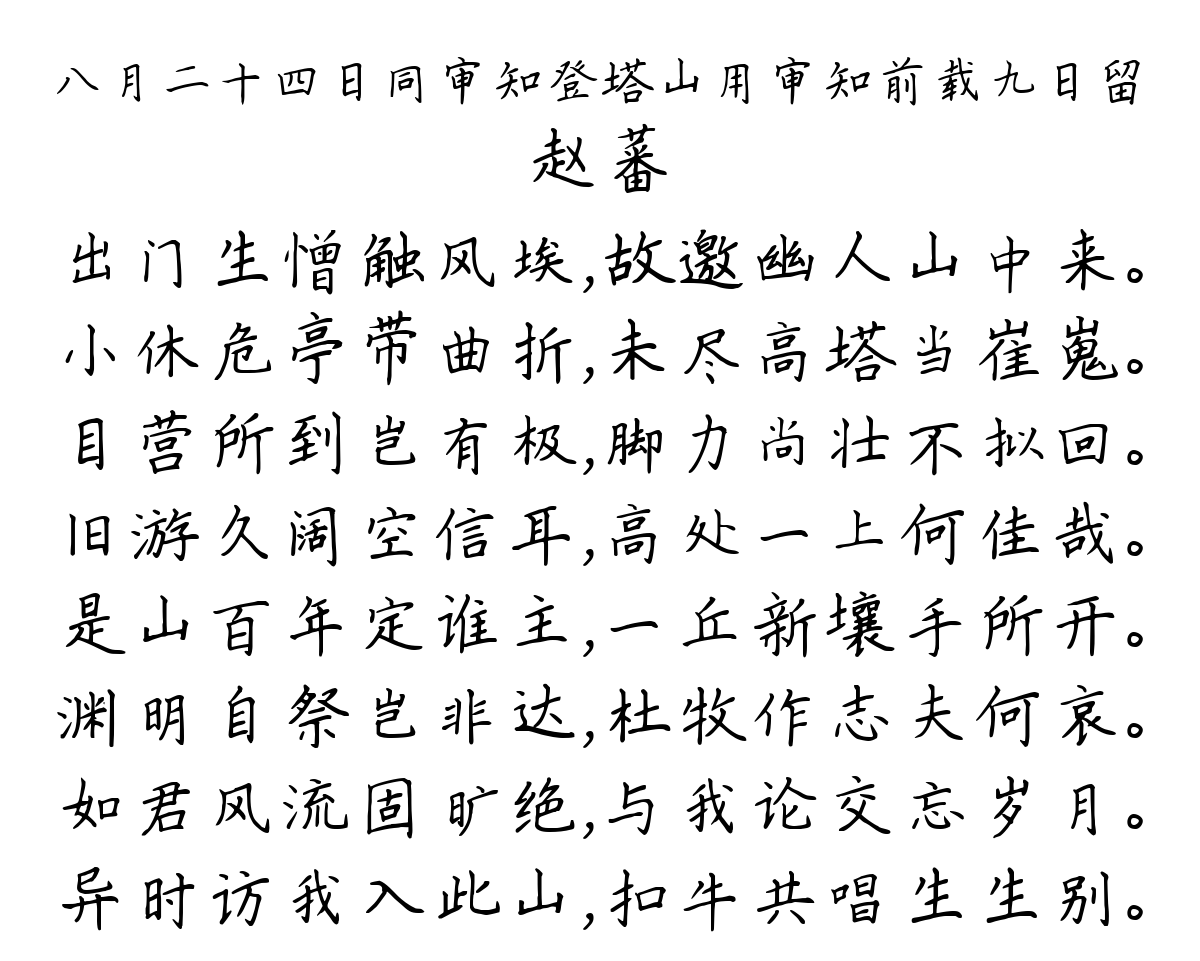 八月二十四日同审知登塔山用审知前载九日留
赵蕃
出门生憎触风埃,故邀幽人山中来。
小休危亭带曲折,未尽高塔当崔嵬。
目营所到岂有极,脚力尚壮不拟回。
旧游久阔空信耳,高处一上何佳哉。
是山百年定谁主,一丘新壤手所开。
渊明自祭岂非达,杜牧作志夫何哀。
如君风流固旷绝,与我论交忘岁月。
异时访我入此山,扣牛共唱生生别。